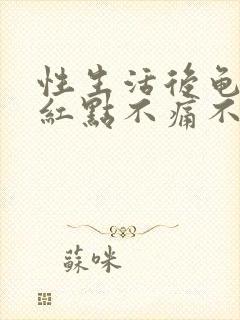 性生活後龟
紅點不痛不
蘇咪